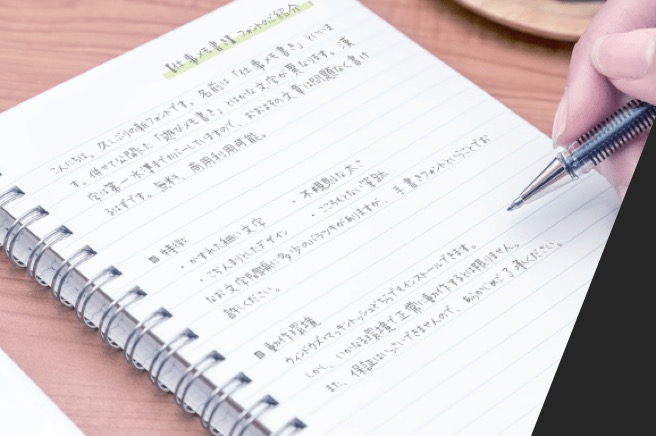 【仕事メモ書き】フォントのご紹介
こんにちは。久しぶりの新フォントです。名前は「仕事メモ書き」としていま
す。併せて公開した「遊びメモ書き」とはかな文字が異なります。漢
字は第一水準までカバーしていますので、おおよその文章は問題なく書け
るはずです。無料、商用利用可能。
■ 特徴
・かすれた細い文字 ・不規則な太さ
・こぢんまりとしたデザイン ・こころもとない筆跡
なお文字間隔に多少のバラツキがありますが、手書きフォントということでお
許しください。
■ 動作環境
ウィンドウズ・マッキントッシュどちらでもインストールできます。
しかし、いかなる環境でも正常に動作するとは限りません。
また、保証はいっさいできませんので、あらかじめご了承ください。